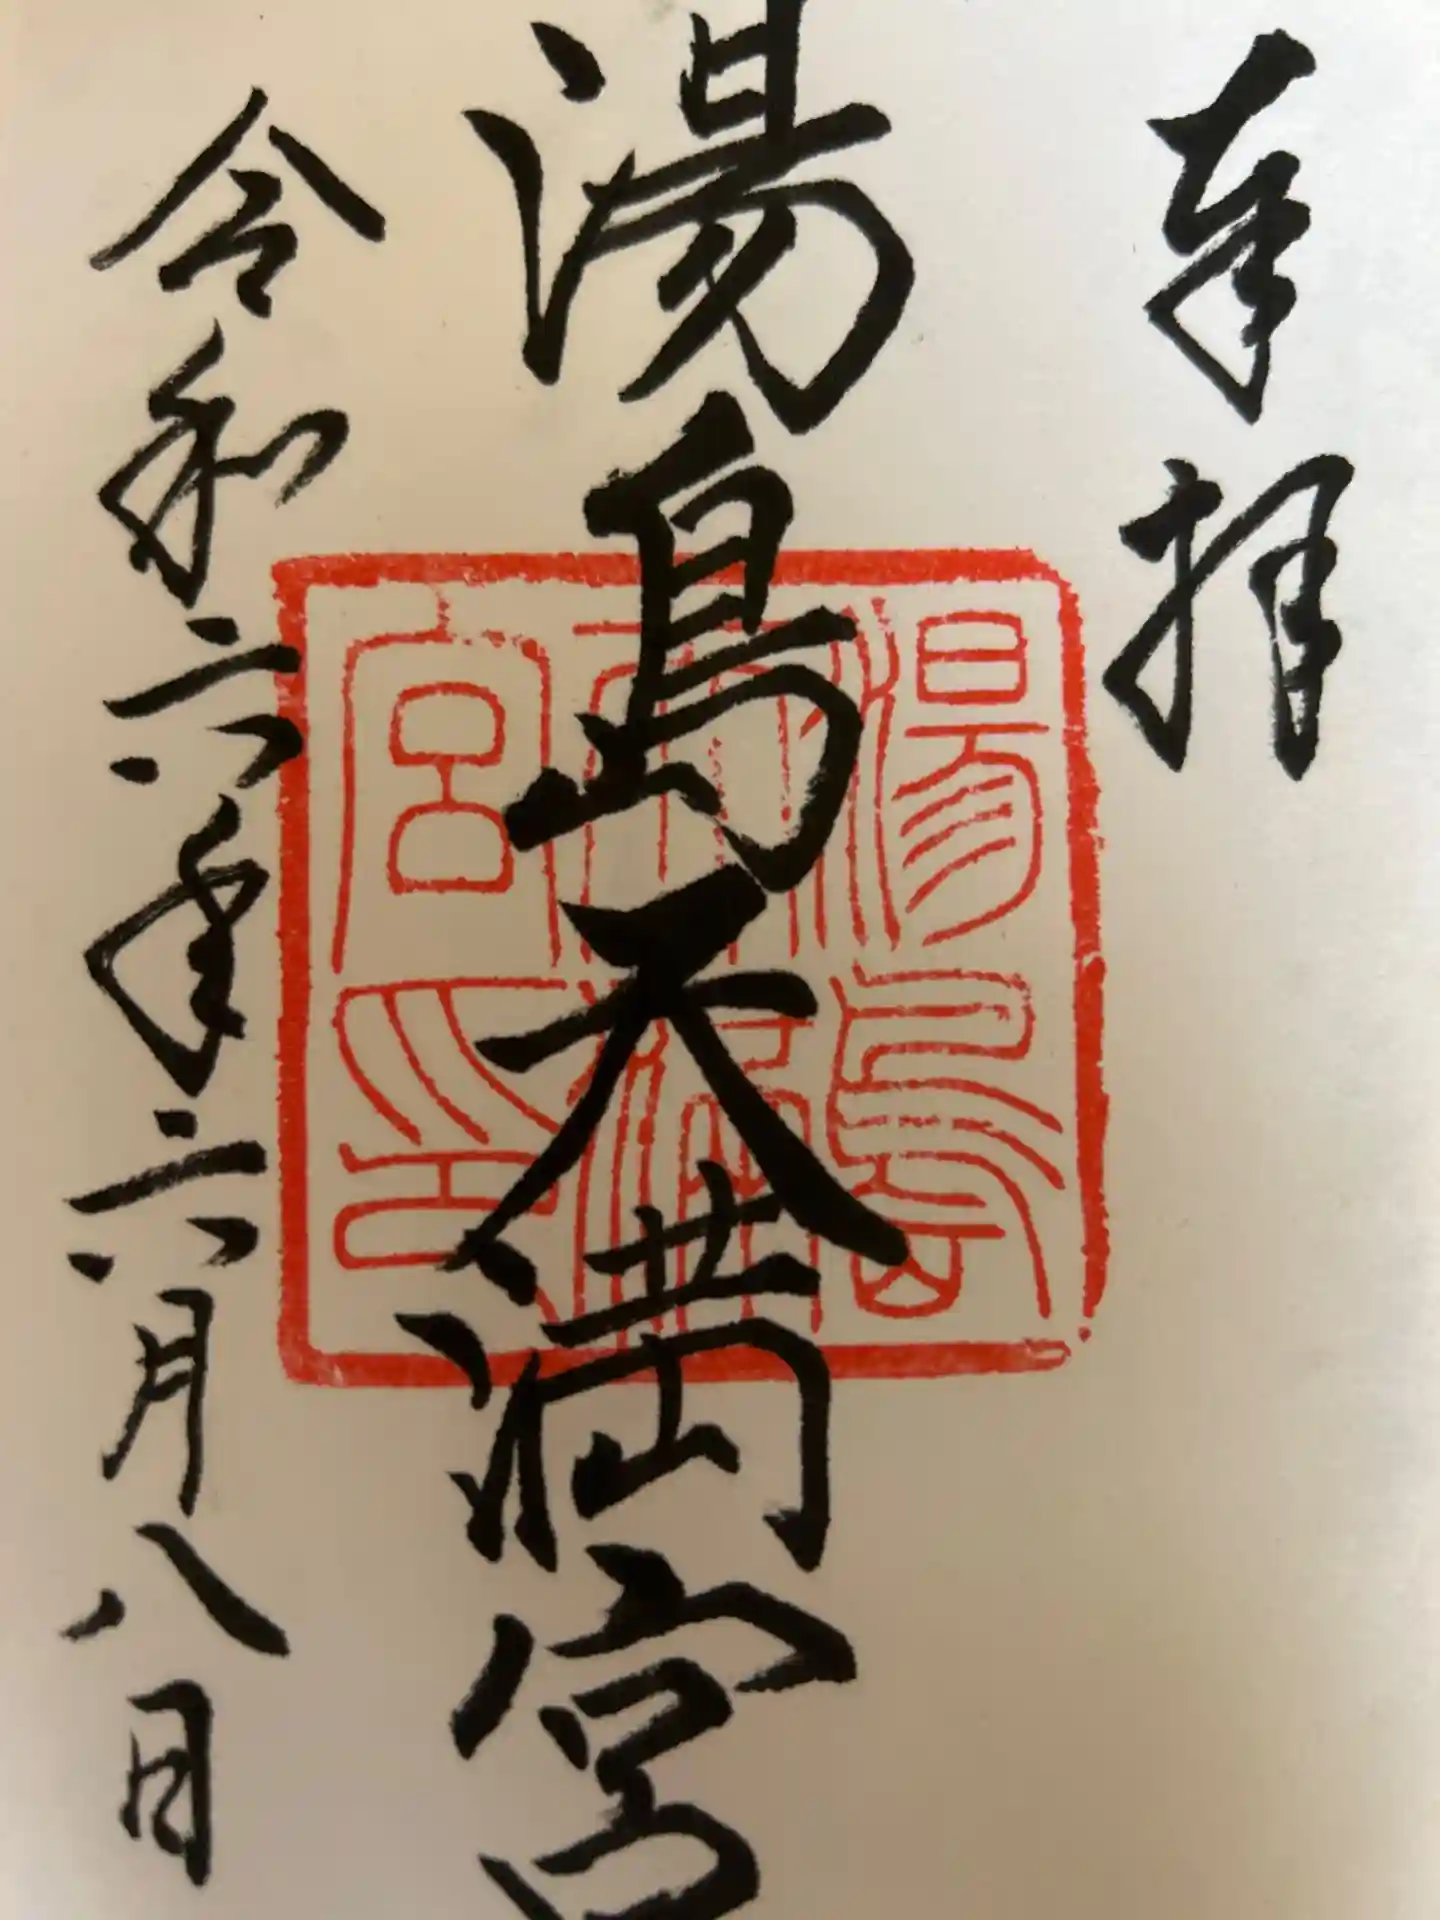 奉拝
湯島天満宮
令和六年六月八日
湯島
天満
宮印